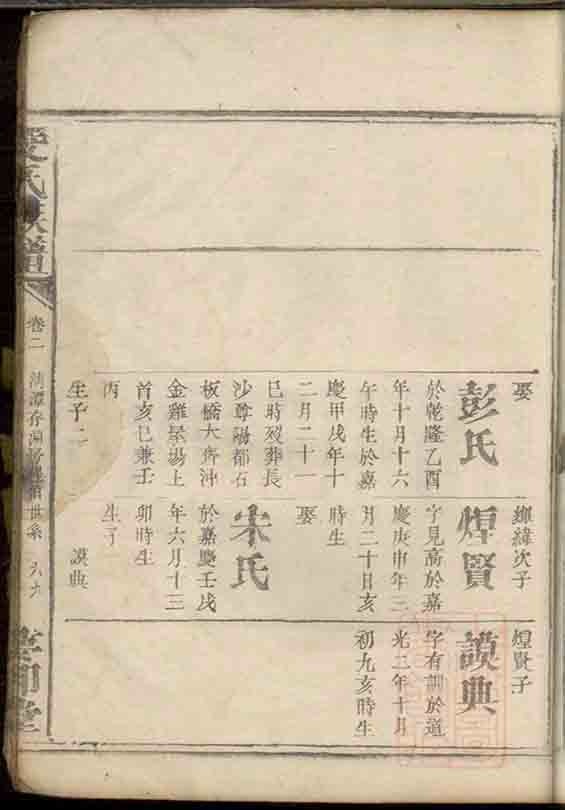 娶
彭氏
於乾隆乙酉
年十月十六
午時生於嘉
慶甲戌年十
二月二十一
巳時歿葬長
沙尊陽都石
板橋大灣沖
金雞
上
首亥巳兼壬
丙
生子二
緯次子
煌賢
字見高於嘉
慶庚申年三
月二十日亥
時生
娶
朱氏
於嘉慶壬戌
年六月十三
卯時生
生子
謨典
煌賢子
謨典
字有訓於道
光二年十月
初九亥時生
氏族譜
卷二
世系
六九
堂